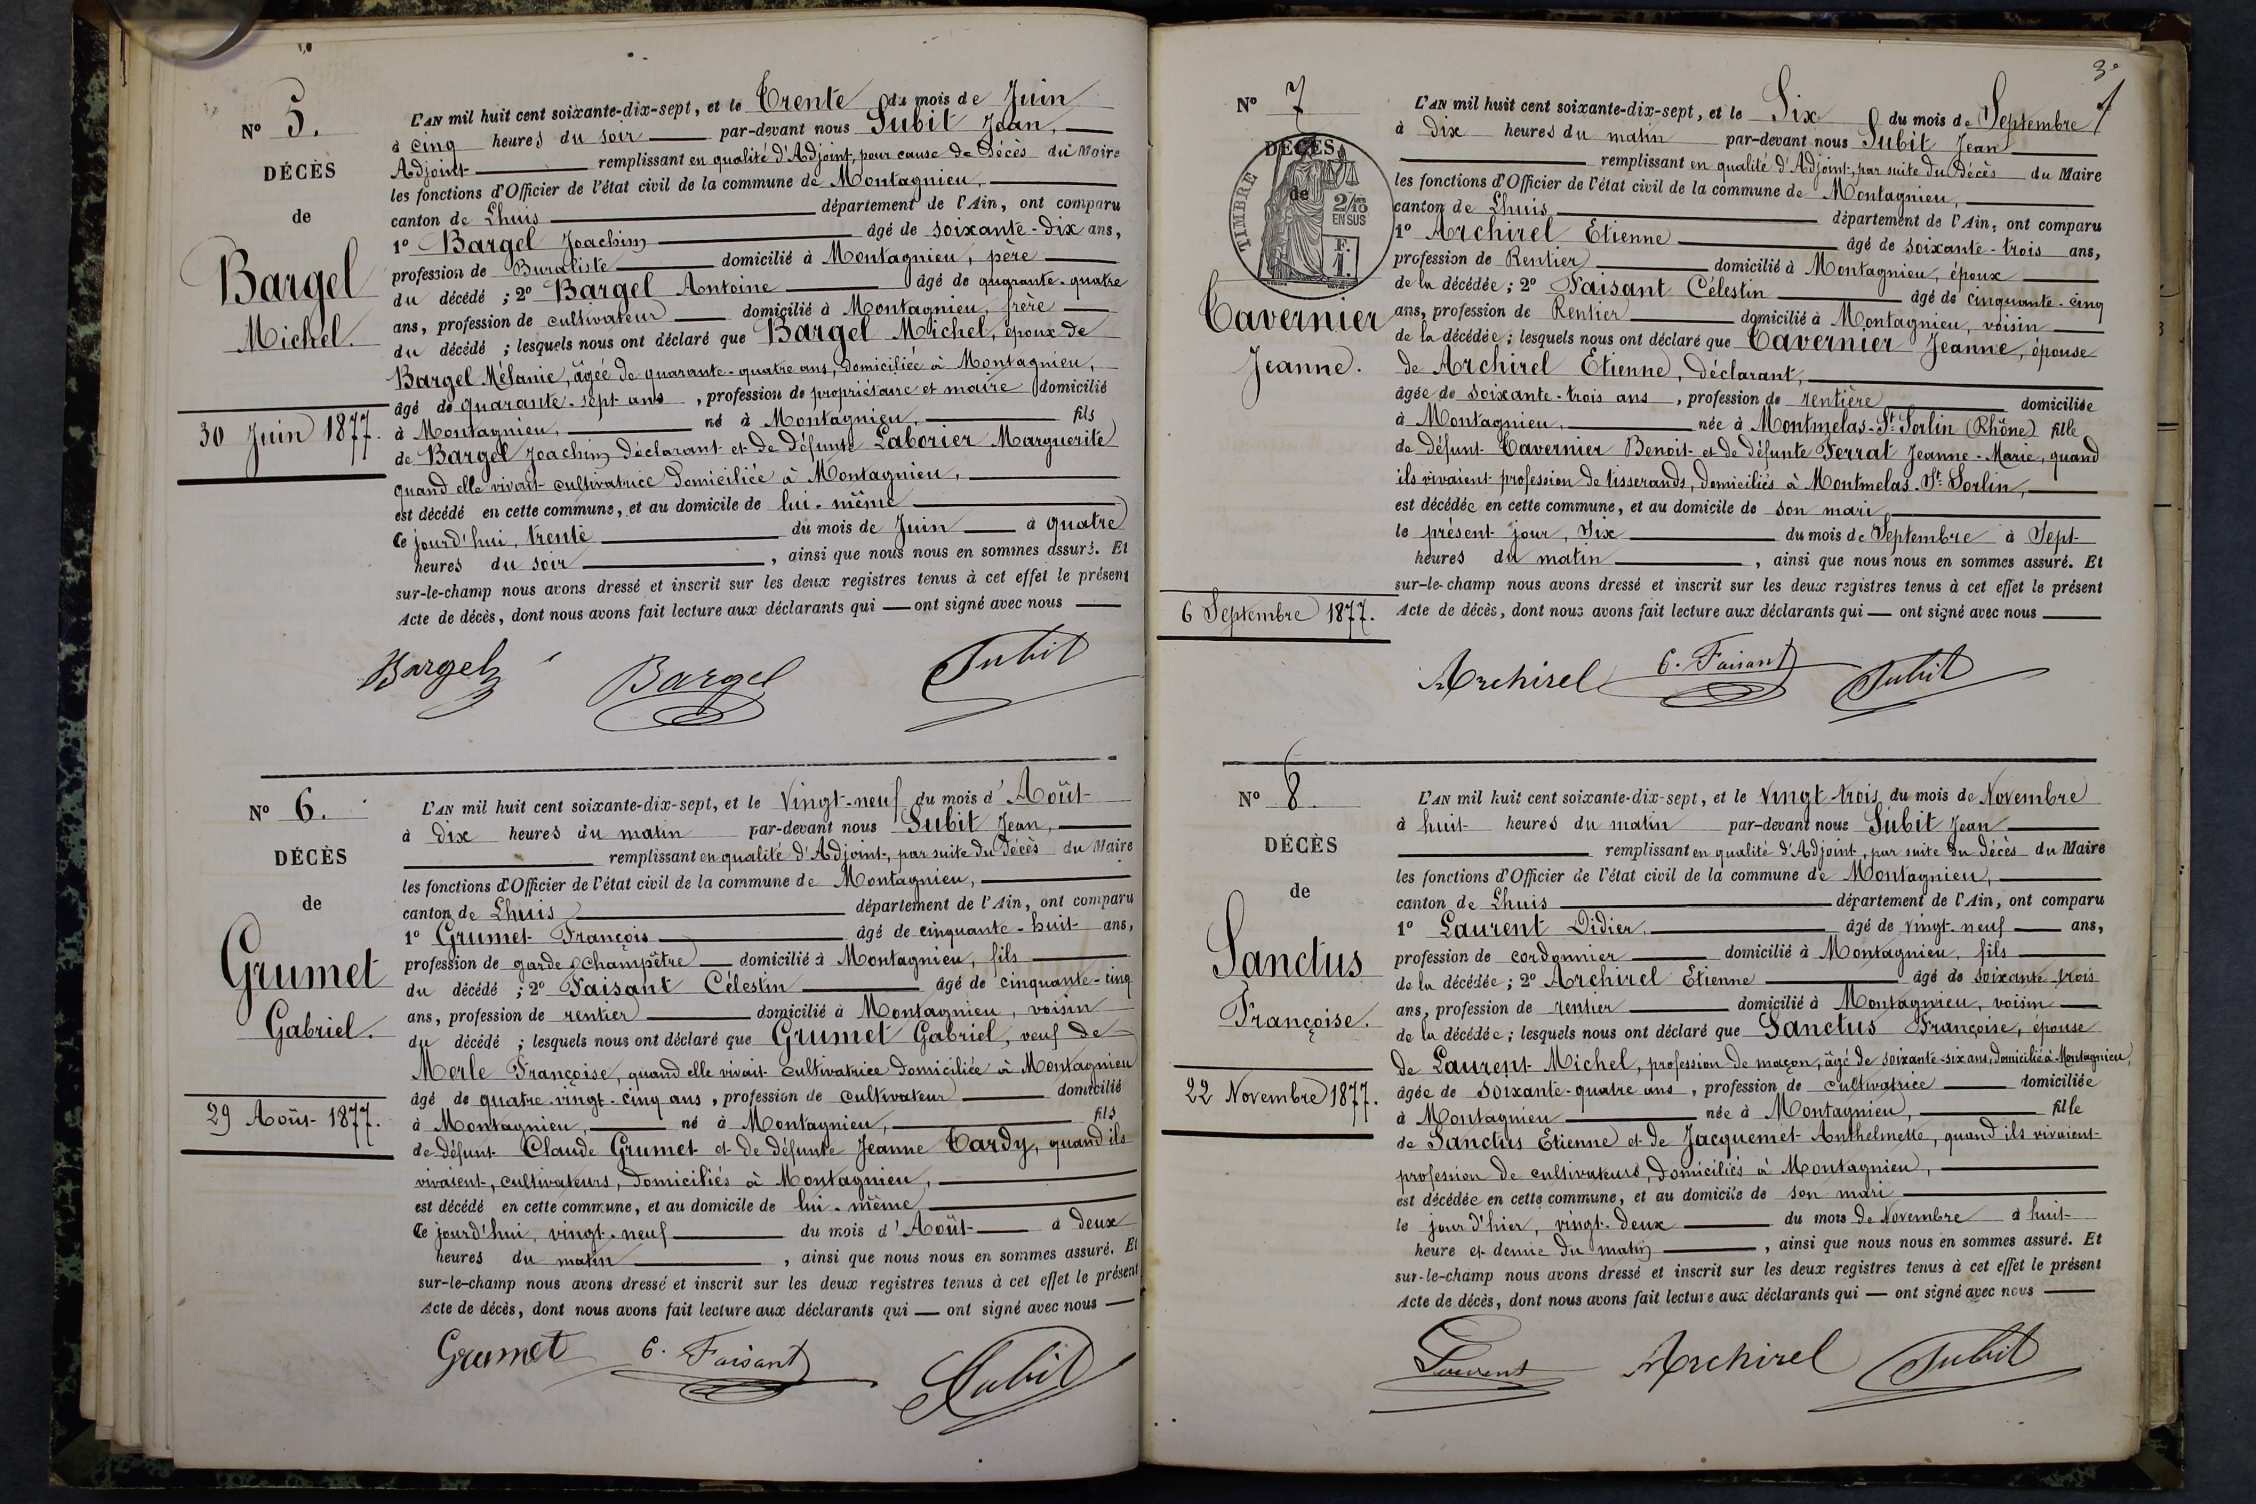 N° 5.
DÉCÈS
de
Bargel
Michel.
30 Juin 1877.
L'AN mil huit cent soixante-dix-sept, et le Trente du mois de Juin
à cinq heures du soir par-devant nous Subit Jean,
Adjoint remplissant en qualité d'Adjoint, pour cause de Décès du Maire
les fonctions d'Officier de l'état civil de la commune de Montagnieu,
canton de Lhuis département de l'Ain, ont comparu
1° Bargel Joachim âgé de soixante-dix ans,
profession de Buraliste domicilié à Montagnieu, père
du décédé ; 2° Bargel Antoine âgé de quarante-quatre
ans, profession de cultivateur domicilié à Montagnieu, frère
du décédé ; lesquels nous ont déclaré que Bargel Michel, époux de
Bargel Mélanie, âgée de quarante-quatre ans, domiciliée à Montagnieu,
âgé de quarante-sept ans, profession de propriétaire et maire domicilié
à Montagnieu, né à Montagnieu, fils
de Bargel Joachim déclarant et de défunte Laborier Marguerite
quand elle vivait cultivatrice domiciliée à Montagnieu,
est décédé en cette commune, et au domicile de lui-même
Ce jourd'hui, trente du mois de Juin à quatre
heures du soir, ainsi que nous nous en sommes assuré. Et
sur-le-champ nous avons dressé et inscrit sur les deux registres tenus à cet effet le présent
Acte de décès, dont nous avons fait lecture aux déclarants qui ont signé avec nous
Bargel Bargel Subit
N° 6.
DÉCÈS
de
Grumet
Gabriel.
29 Août 1877.
L'AN mil huit cent soixante-dix-sept, et le Vingt-neuf du mois d'Août
à dix heures du matin par-devant nous Subit Jean,
remplissant en qualité d'Adjoint, par suite du Décès du Maire
les fonctions d'Officier de l'état civil de la commune de Montagnieu,
canton de Lhuis département de l'Ain, ont comparu
1° Grumet François âgé de cinquante-huit ans,
profession de garde champêtre domicilié à Montagnieu, fils
du décédé ; 2° Faisant Célestin âgé de cinquante-cinq
ans, profession de rentier domicilié à Montagnieu, voisin
du décédé ; lesquels nous ont déclaré que Grumet Gabriel, veuf de
Merle Françoise, quand elle vivait cultivatrice domiciliée à Montagnieu
âgé de quatre-vingt-cinq ans, profession de cultivateur domicilié
à Montagnieu, né à Montagnieu, fils
de défunt Claude Grumet et de défunte Jeanne Tardy, quand ils
vivaient, cultivateurs, domiciliés à Montagnieu,
est décédé en cette commune, et au domicile de lui-même
Ce jourd'hui, vingt-neuf du mois d'Août à deux
heures du matin, ainsi que nous nous en sommes assuré. Et
sur-le-champ nous avons dressé et inscrit sur les deux registres tenus à cet effet le présent
Acte de décès, dont nous avons fait lecture aux déclarants qui ont signé avec nous
Grumet C. Faisant Subit
3°
N° 7
DÉCÈS
de
TIMBRE
2/10
EN SUS
F.
1.
Tavernier
Jeanne.
6 Septembre 1877.
L'AN mil huit cent soixante-dix-sept, et le Six du mois de Septembre
à dix heures du matin par-devant nous Subit Jean
remplissant en qualité d'Adjoint, par suite du Décès du Maire
les fonctions d'Officier de l'état civil de la commune de Montagnieu,
canton de Lhuis département de l'Ain, ont comparu
1° Archirel Etienne âgé de soixante-trois ans,
profession de Rentier domicilié à Montagnieu, époux
de la décédée ; 2° Faisant Célestin âgé de cinquante-cinq
ans, profession de Rentier domicilié à Montagnieu, voisin
de la décédée ; lesquels nous ont déclaré que Tavernier Jeanne, épouse
de Archirel Etienne, déclarant,
âgée de soixante-trois ans, profession de rentière domiciliée
à Montagnieu, née à Montmelas-St Sorlin (Rhône) fille
de défunt Tavernier Benoit et de défunte Ferrat Jeanne-Marie, quand
ils vivaient profession de tisserands, domiciliés à Montmelas-St Sorlin,
est décédée en cette commune, et au domicile de son mari
le présent jour, Six du mois de Septembre à Sept
heures du matin, ainsi que nous nous en sommes assuré. Et
sur-le-champ nous avons dressé et inscrit sur les deux registres tenus à cet effet le présent
Acte de décès, dont nous avons fait lecture aux déclarants qui ont signé avec nous
Archirel C. Faisant Subit
N° 8
DÉCÈS
de
Sanctus
Françoise.
22 Novembre 1877.
L'AN mil huit cent soixante-dix-sept, et le Vingt-trois du mois de Novembre
à huit heures du matin par-devant nous Subit Jean
remplissant en qualité d'Adjoint, par suite du décès du Maire
les fonctions d'Officier de l'état civil de la commune de Montagnieu,
canton de Lhuis département de l'Ain, ont comparu
1° Laurent Didier, âgé de vingt-neuf ans,
profession de cordonnier domicilié à Montagnieu, fils
de la décédée ; 2° Archirel Etienne âgé de soixante-trois
ans, profession de rentier domicilié à Montagnieu, voisin
de la décédée ; lesquels nous ont déclaré que Sanctus Françoise, épouse
de Laurent Michel, profession de maçon, âgé de soixante-six ans, domicilié à Montagnieu,
âgée de soixante-quatre ans, profession de cultivatrice domiciliée
à Montagnieu née à Montagnieu, fille
de Sanctus Etienne et de Jacquemet Anthelmette, quand ils vivaient
profession de cultivateurs, domiciliés à Montagnieu,
est décédée en cette commune, et au domicile de son mari
le jour d'hier, vingt-deux du mois de Novembre à huit
heure et demie du matin, ainsi que nous nous en sommes assuré. Et
sur-le-champ nous avons dressé et inscrit sur les deux registres tenus à cet effet le présent
Acte de décès, dont nous avons fait lecture aux déclarants qui ont signé avec nous
Laurent Archirel Subit